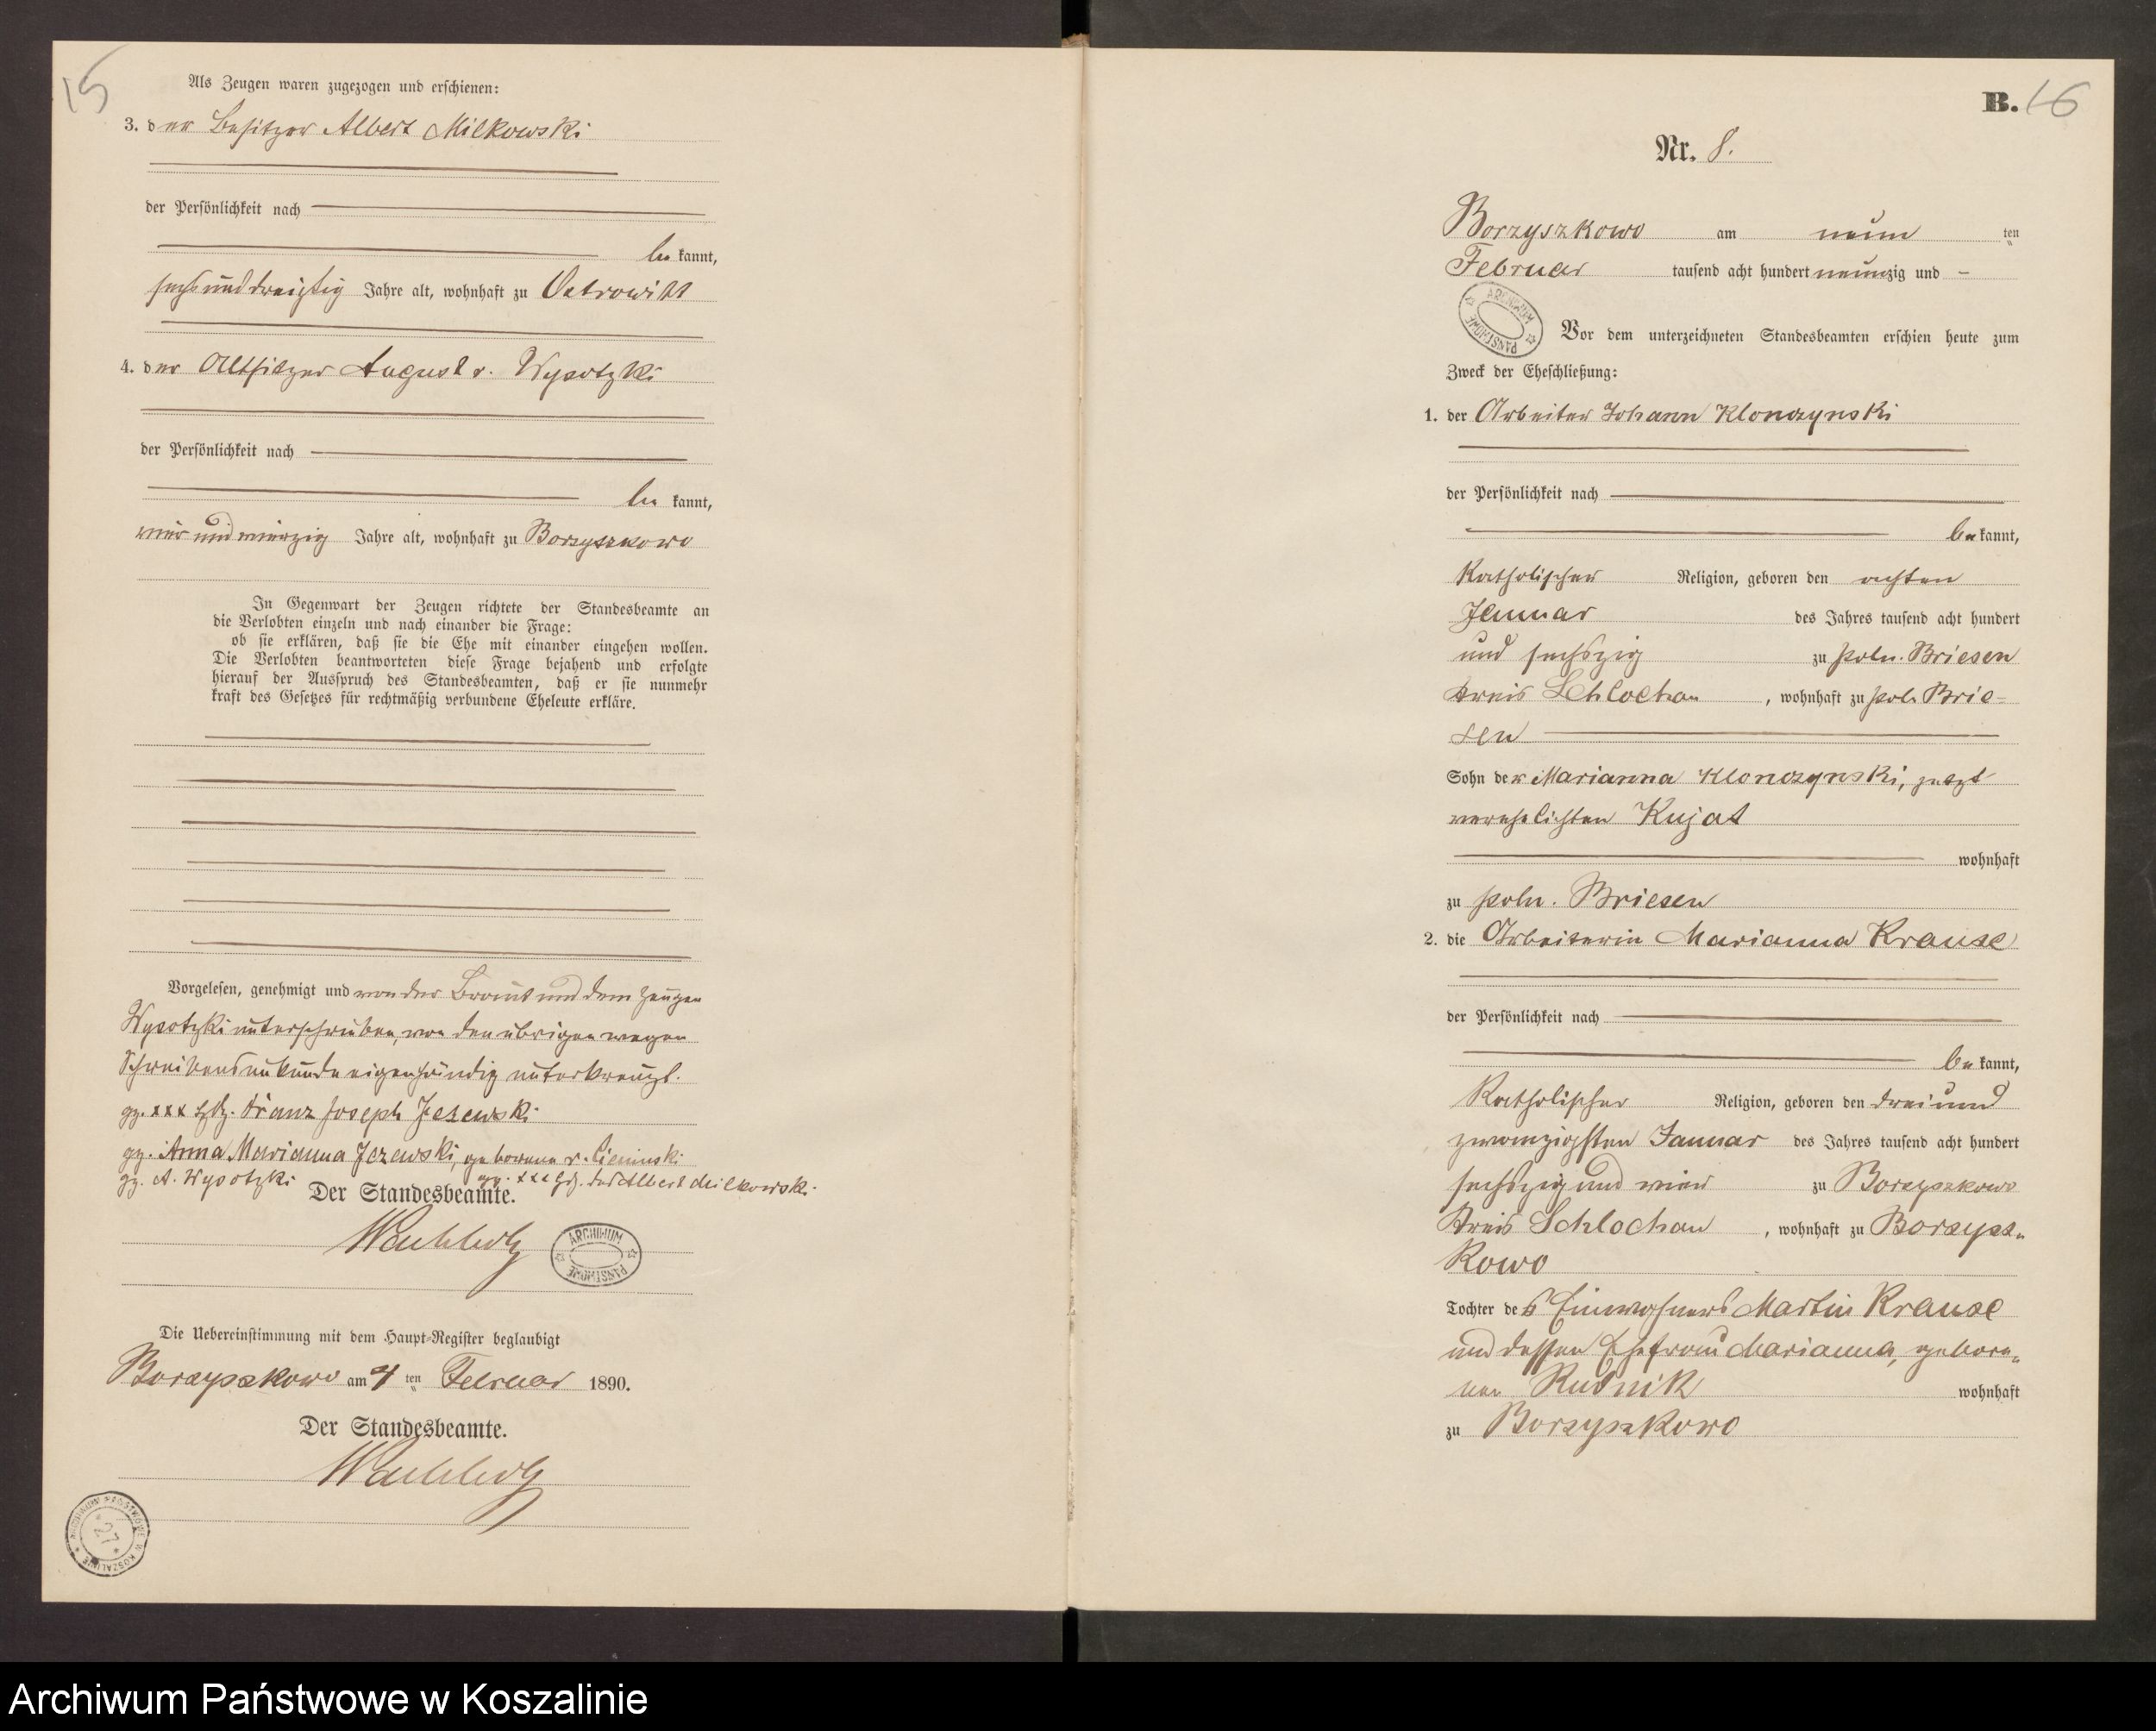 15
Als Zeugen waren zugezogen und erschienen:
3. der Besitzer Albert Milkowski
der Persönlichkeit nach
be kannt,
sechsunddreißig Jahre alt, wohnhaft zu Ostrowitt
4. der Altsitzer August v. Wysotzki
der Persönlichkeit nach
be kannt,
vier und vierzig Jahre alt, wohnhaft zu Borzyszkowo
In Gegenwart der Zeugen richtete der Standesbeamte an
die Verlobten einzeln und nach einander die Frage:
ob sie erklären, daß sie die Ehe mit einander eingehen wollen.
Die Verlobten beantworteten diese Frage bejahend und erfolgte
hierauf der Ausspruch des Standesbeamten, daß er sie nunmehr
kraft des Gesetzes für rechtmäßig verbundene Eheleute erkläre.
Vorgelesen, genehmigt und von der Braut und dem Zeugen
Wysotzki unterschrieben, von den übrigen wegen
Schreibensunkunde eigenhändig unterkreuzt.
gz. xxx Hdz. Franz Joseph Jezewski
gz. Anna Marianna Jezewski, geborene v. Cieminski
gz. A. Wysotzki gz. xxx Hdz. des Albert Milkowski
Der Standesbeamte.
Wachholz
ARCHIWUM PAŃSTWOWE
Die Uebereinstimmung mit dem Haupt-Register beglaubigt
Borzyszkowo am 4 ten Februar 1890.
Der Standesbeamte.
Wachholz
ARCHIWUM PAŃSTWOWE W KOSZALINIE
* 27 *
B. 16
Nr. 8.
Borzyszkowo am neun ten
Februar tausend acht hundert neunzig und –
ARCHIWUM PAŃSTWOWE
Vor dem unterzeichneten Standesbeamten erschien heute zum
Zweck der Eheschließung:
1. der Arbeiter Johann Klonczynski
der Persönlichkeit nach
be kannt,
Katholischer Religion, geboren den achten
Januar des Jahres tausend acht hundert
und sechszig zu poln. Briesen
Kreis Schlochau, wohnhaft zu poln. Brie-
sen
Sohn der Marianna Klonczynski, jetzt
verehelichten Kujat
wohnhaft
zu poln. Briesen
2. die Arbeiterin Marianna Krause
der Persönlichkeit nach
be kannt,
Katholischer Religion, geboren den drei und
zwanzigsten Januar des Jahres tausend acht hundert
sechszig und vier zu Borzyszkowo
Kreis Schlochau, wohnhaft zu Borzysz-
kowo
Tochter des Einwohners Martin Krause
und dessen Ehefrau Marianna, gebore-
nen Rudnik wohnhaft
zu Borzyszkowo
Archiwum Państwowe w Koszalinie